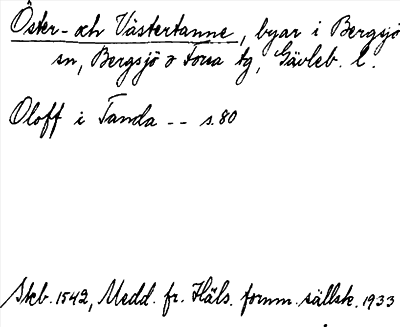 Öster- och Västertanne, byar i Bergsjö
sn, Bergsjö o Forsa tg, Gävleb. l.
Oloff i Tanda -- s. 80
Skb. 1542, Medd. fr. Häls. fornm. sällsk. 1933